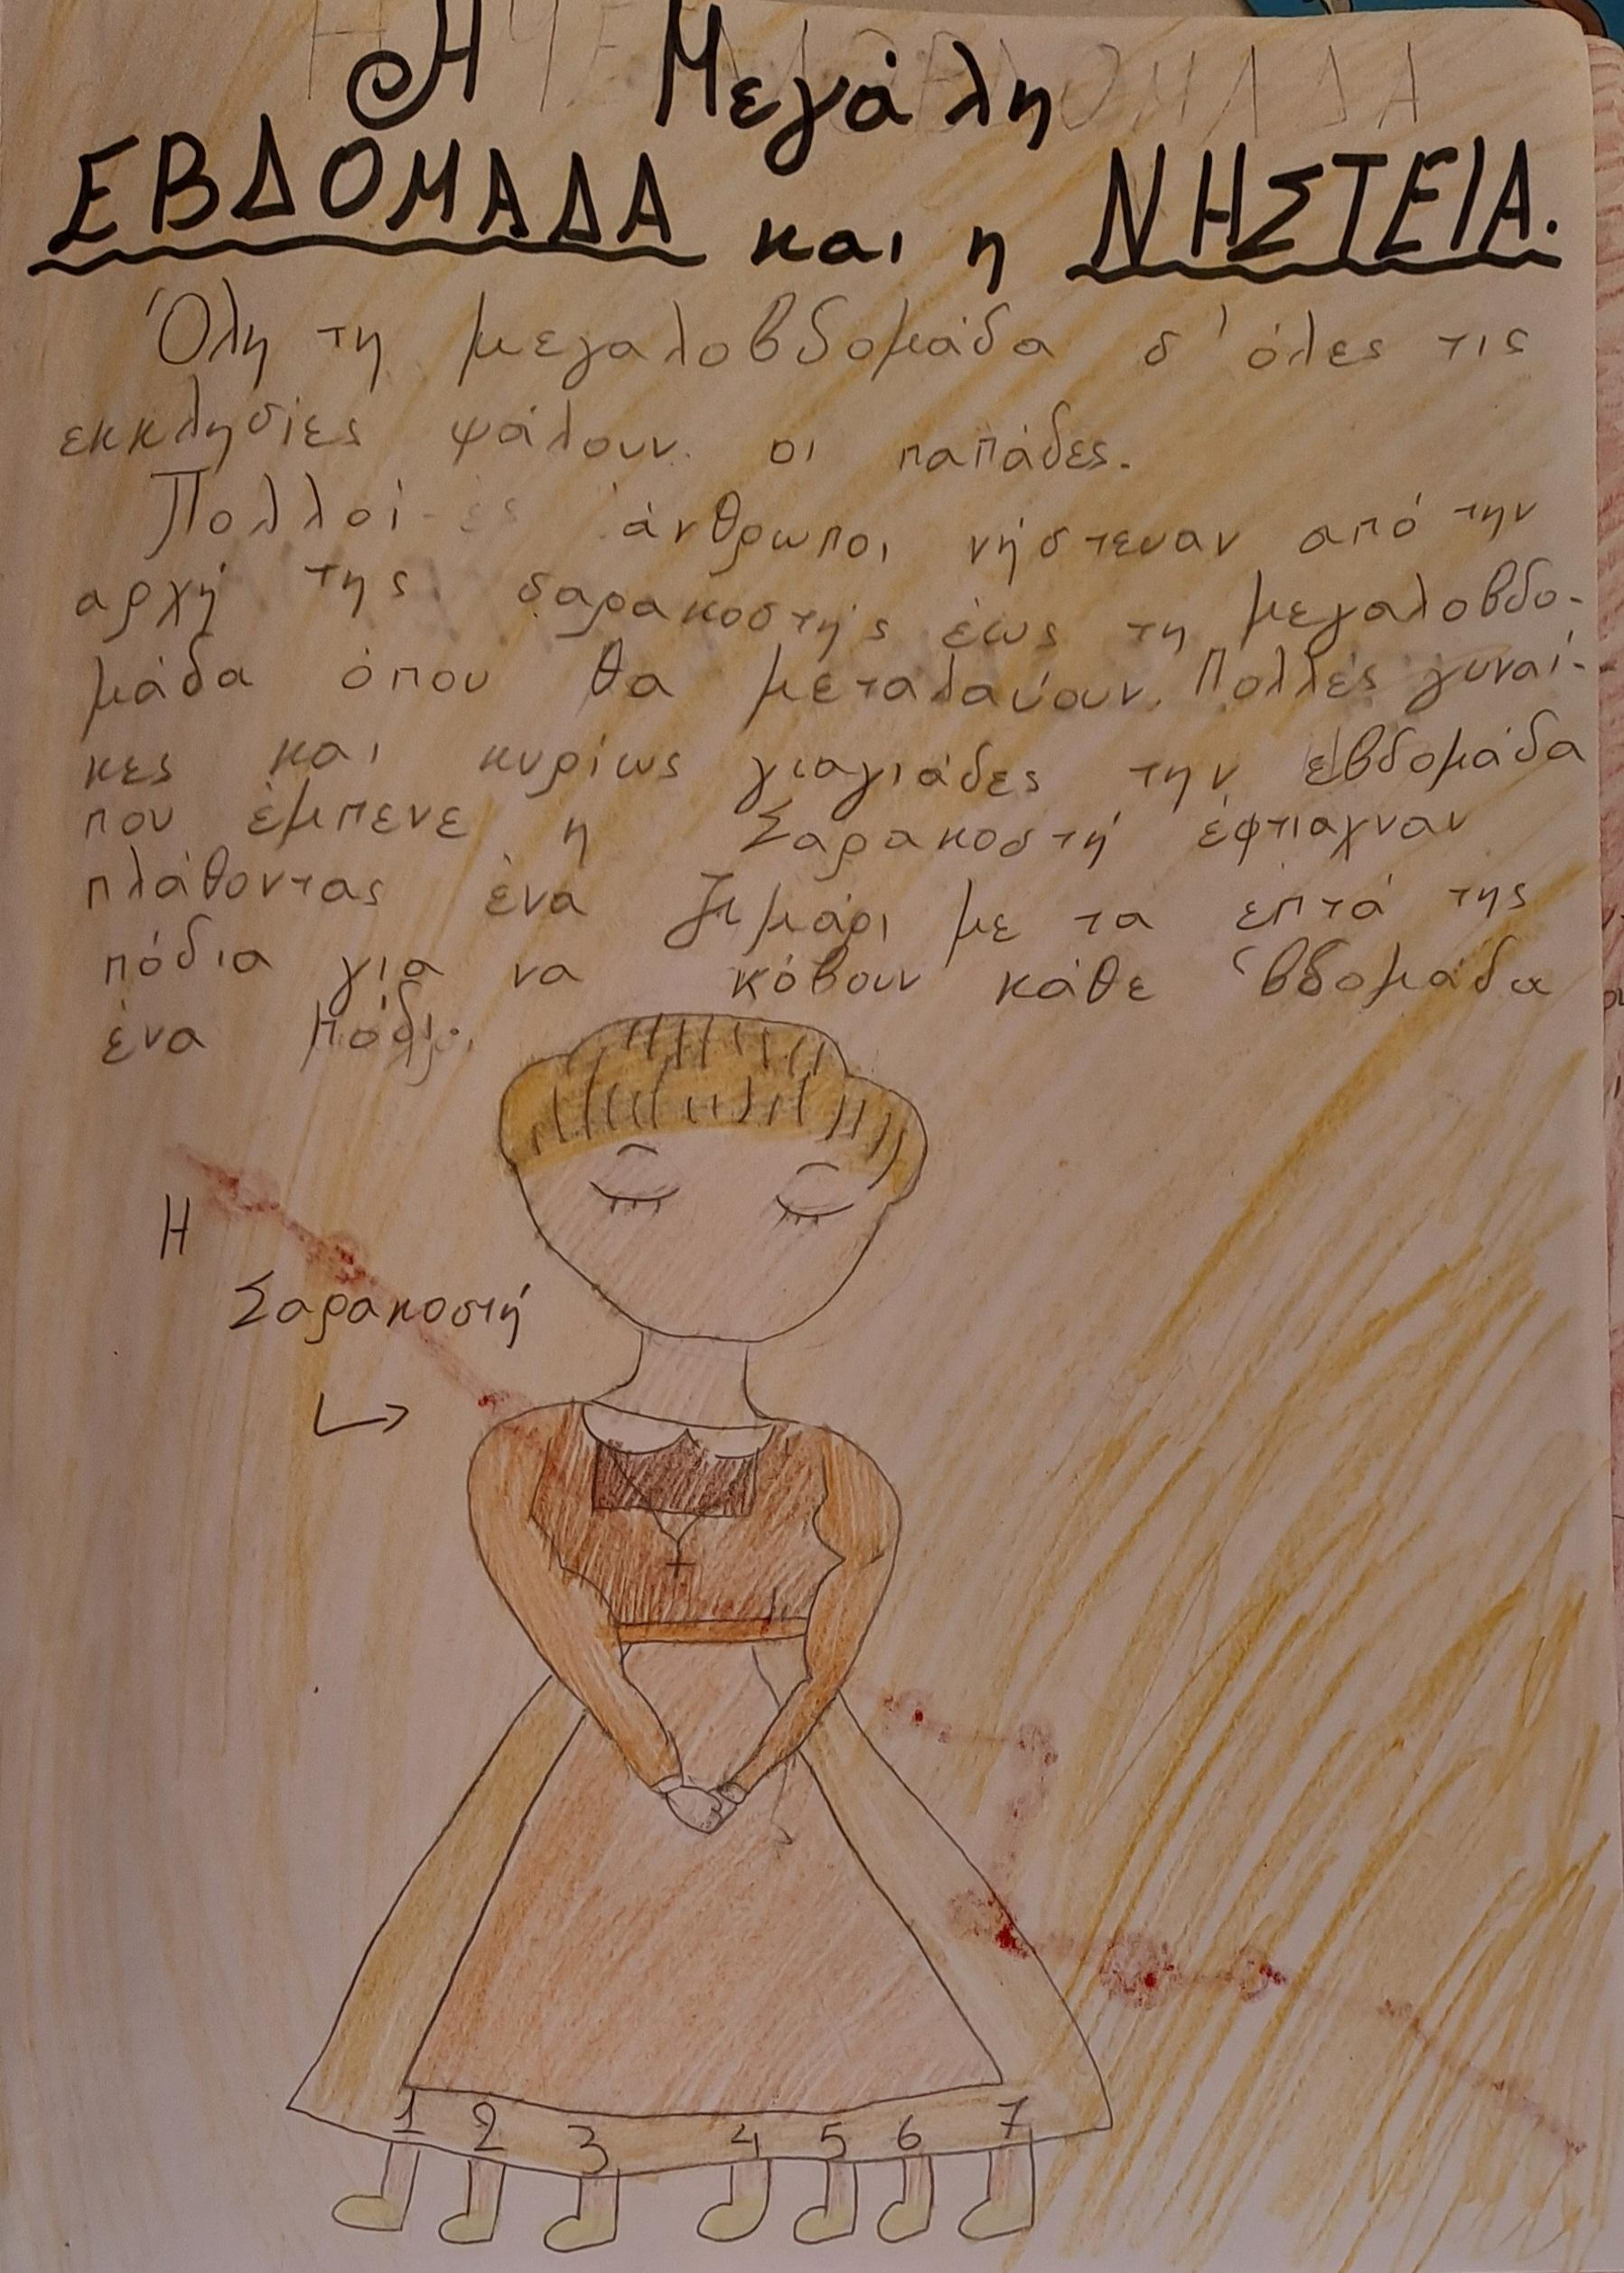 Η Μεγάλη
ΕΒΔΟΜΑΔΑ και η ΝΗΣΤΕΙΑ.
Όλη τη μεγαλοβδομάδα σ' όλες τις
εκκλησίες ψάλουν οι παπάδες.
Πολλοί άνθρωποι νήστευαν από την
αρχή της σαρακοστής έως τη μεγαλοβδο-
μάδα όπου θα μεταλαύουν. Πολλές γυναί-
κες και κυρίως γιαγιάδες την εβδομάδα
που έμπενε η Σαρακοστή έφτιαχναν
πλάθοντας ένα ζιμάρι με τα επτά της
πόδια για να κόβουν κάθε 'βδομάδα
ένα πόδι.
Η
Σαρακοστή
1 2 3 4 5 6 7